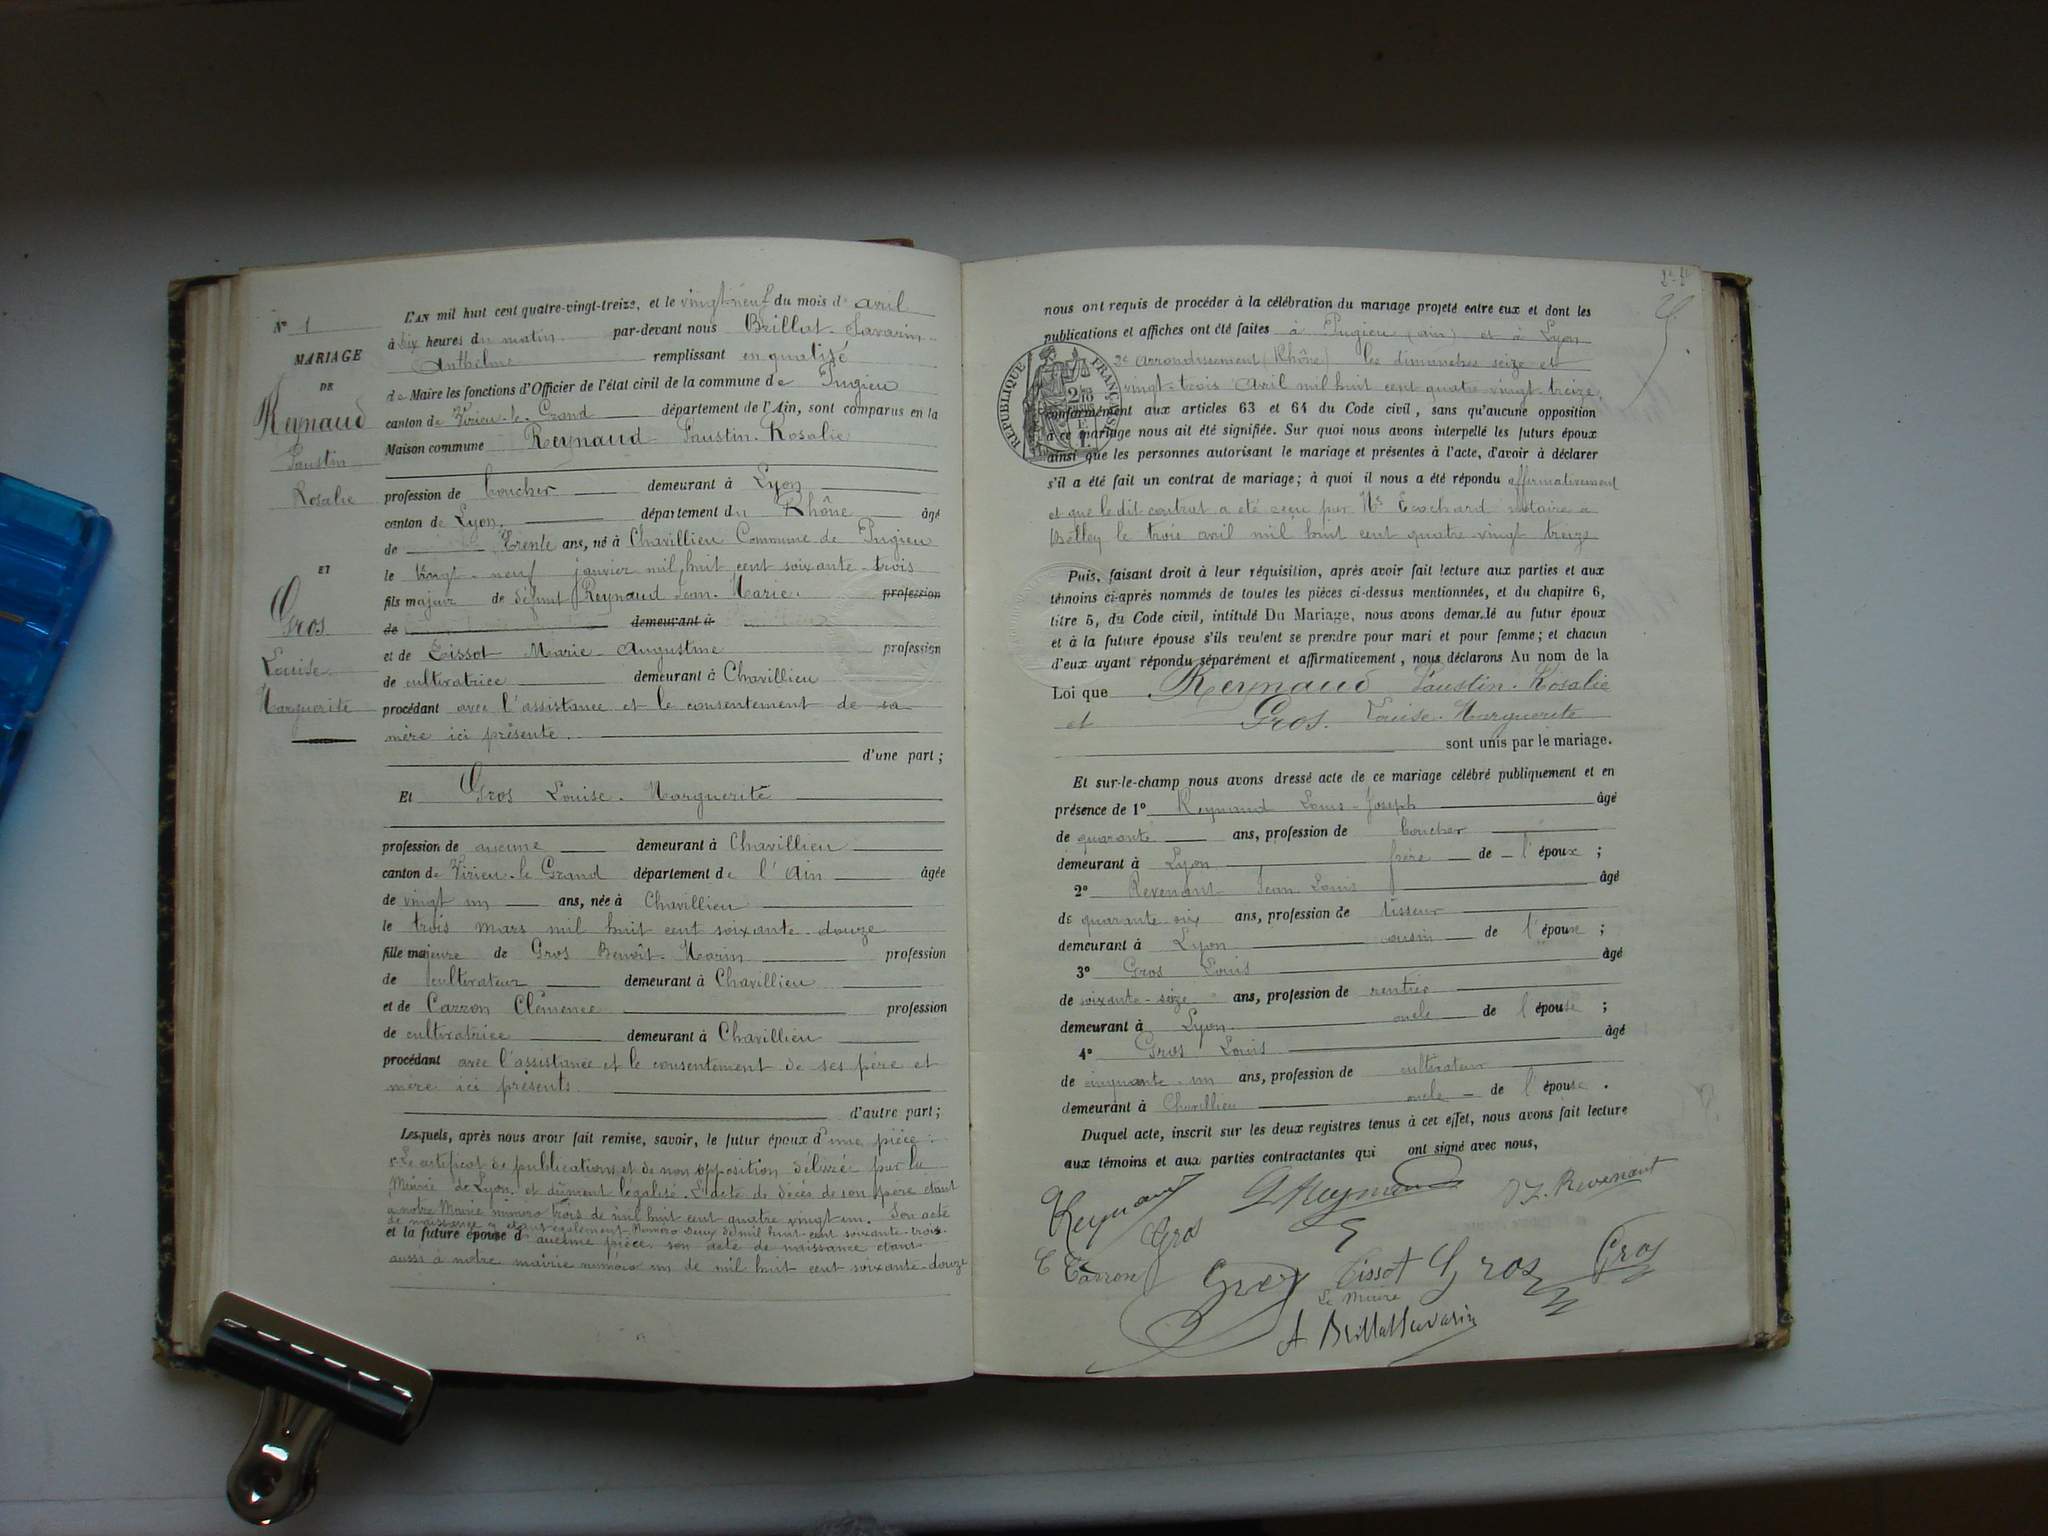 N° 1
MARIAGE
DE
Reynaud
Faustin
Rosalie
ET
Gros
Louise
Marguerite
L'AN mil huit cent quatre-vingt-treize, et le vingt-neuf du mois d' avril
à dix heures du matin par-devant nous Brillat-Savarin
Anthelme remplissant en qualité
de Maire les fonctions d'Officier de l'état civil de la commune de Pugieu
canton de Virieu-le-Grand département de l'Ain, sont comparus en la
Maison commune Reynaud Faustin-Rosalie
profession de boucher demeurant à Lyon
canton de Lyon, département du Rhône âgé
de trente ans, né à Chavillieu Commune de Pugieu
le vingt-neuf janvier mil huit cent soixante-trois
fils majeur de défunt Reynaud Jean-Marie. profession
de demeurant à
et de Tissot Marie-Augustine profession
de cultivatrice demeurant à Chavillieu
procédant avec l'assistance et le consentement de sa
mère ici présente.
d'une part;
Et Gros Louise-Marguerite
profession de aucune demeurant à Chavillieu
canton de Virieu-le-Grand département de l'Ain âgée
de vingt un ans, née à Chavillieu
le trois mars mil huit cent soixante-douze
fille majeure de Gros Benoît-Marin profession
de cultivateur demeurant à Chavillieu
et de Carron Clémence profession
de cultivatrice demeurant à Chavillieu
procédant avec l'assistance et le consentement de ses père et
mère ici présents
d'autre part;
Lesquels, après nous avoir fait remise, savoir, le futur époux d'une pièce:
Le certificat de publications et de non opposition délivré par la
Mairie de Lyon, et dûment légalisé. L'acte de décès de son père étant
à notre Mairie numéro trois de mil huit cent quatre vingt un. Son acte
de naissance y étant également numéro deux de mil huit cent soixante-trois.
et la future épouse d'aucune pièce. son acte de naissance étant
aussi à notre mairie numéro un de mil huit cent soixante-douze
nous ont requis de procéder à la célébration du mariage projeté entre eux et dont les
publications et affiches ont été faites à Pugieu (ain) et à Lyon
2e arrondissement (Rhône) les dimanches seize et
vingt-trois Avril mil huit cent quatre vingt-treize,
conformément aux articles 63 et 64 du Code civil, sans qu'aucune opposition
à ce mariage nous ait été signifiée. Sur quoi nous avons interpellé les futurs époux
ainsi que les personnes autorisant le mariage et présentes à l'acte, d'avoir à déclarer
s'il a été fait un contrat de mariage; à quoi il nous a été répondu affirmativement
et que le dit contrat a été reçu par Me notaire à
Belley le trois avril mil huit cent quatre-vingt treize
RÉPUBLIQUE FRANÇAISE
Puis, faisant droit à leur réquisition, après avoir fait lecture aux parties et aux
témoins ci-après nommés de toutes les pièces ci-dessus mentionnées, et du chapitre 6,
titre 5, du Code civil, intitulé Du Mariage, nous avons demandé au futur époux
et à la future épouse s'ils veulent se prendre pour mari et pour femme; et chacun
d'eux ayant répondu séparément et affirmativement, nous déclarons Au nom de la
Loi que Reynaud Faustin-Rosalie
et Gros. Louise-Marguerite
sont unis par le mariage.
Et sur-le-champ nous avons dressé acte de ce mariage célébré publiquement et en
présence de 1° Reynaud Louis-Joseph âgé
de quarante ans, profession de boucher
demeurant à Lyon frère de l'époux;
2° Revenant Jean Louis âgé
de quarante six ans, profession de tisseur
demeurant à Lyon cousin de l'épouse;
3° Gros Louis âgé
de soixante-seize ans, profession de rentier
demeurant à Lyon oncle de l'épouse;
4° Gros Louis âgé
de cinquante-un ans, profession de cultivateur
demeurant à Chavillieu oncle de l'épouse.
Duquel acte, inscrit sur les deux registres tenus à cet effet, nous avons fait lecture
aux témoins et aux parties contractantes qui ont signé avec nous,
Reynaud
Reynaud
J L. Revenant
Gros
C Carron
Gros
Tissot
Gros
Gros
Le Maire
A Brillat Savarin